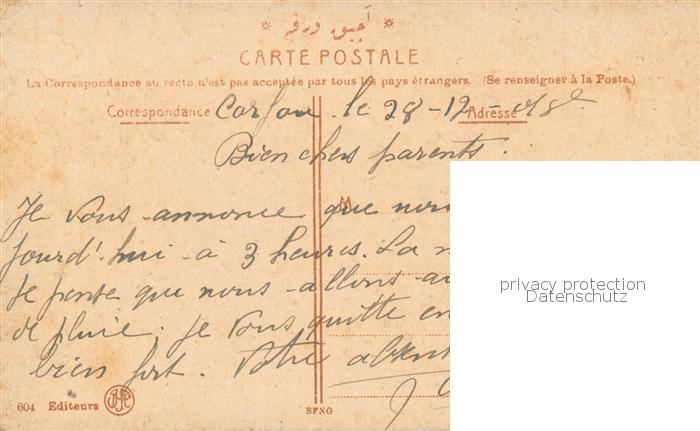 CARTE POSTALE
La Correspondance au recto n'est pas acceptée par tous les pays étrangers. (Se renseigner à la Poste.)
Correspondance
Adresse
Corfou le 28-12-
Bien chers parents.
M
Je vous annonce que nou
jourd'hui à 3 heures. La
Je pense que nous allons au
de pluie. Je vous quitte en
bien fort. Votre
privacy protection
Datenschutz
604 Editeurs
SFNG